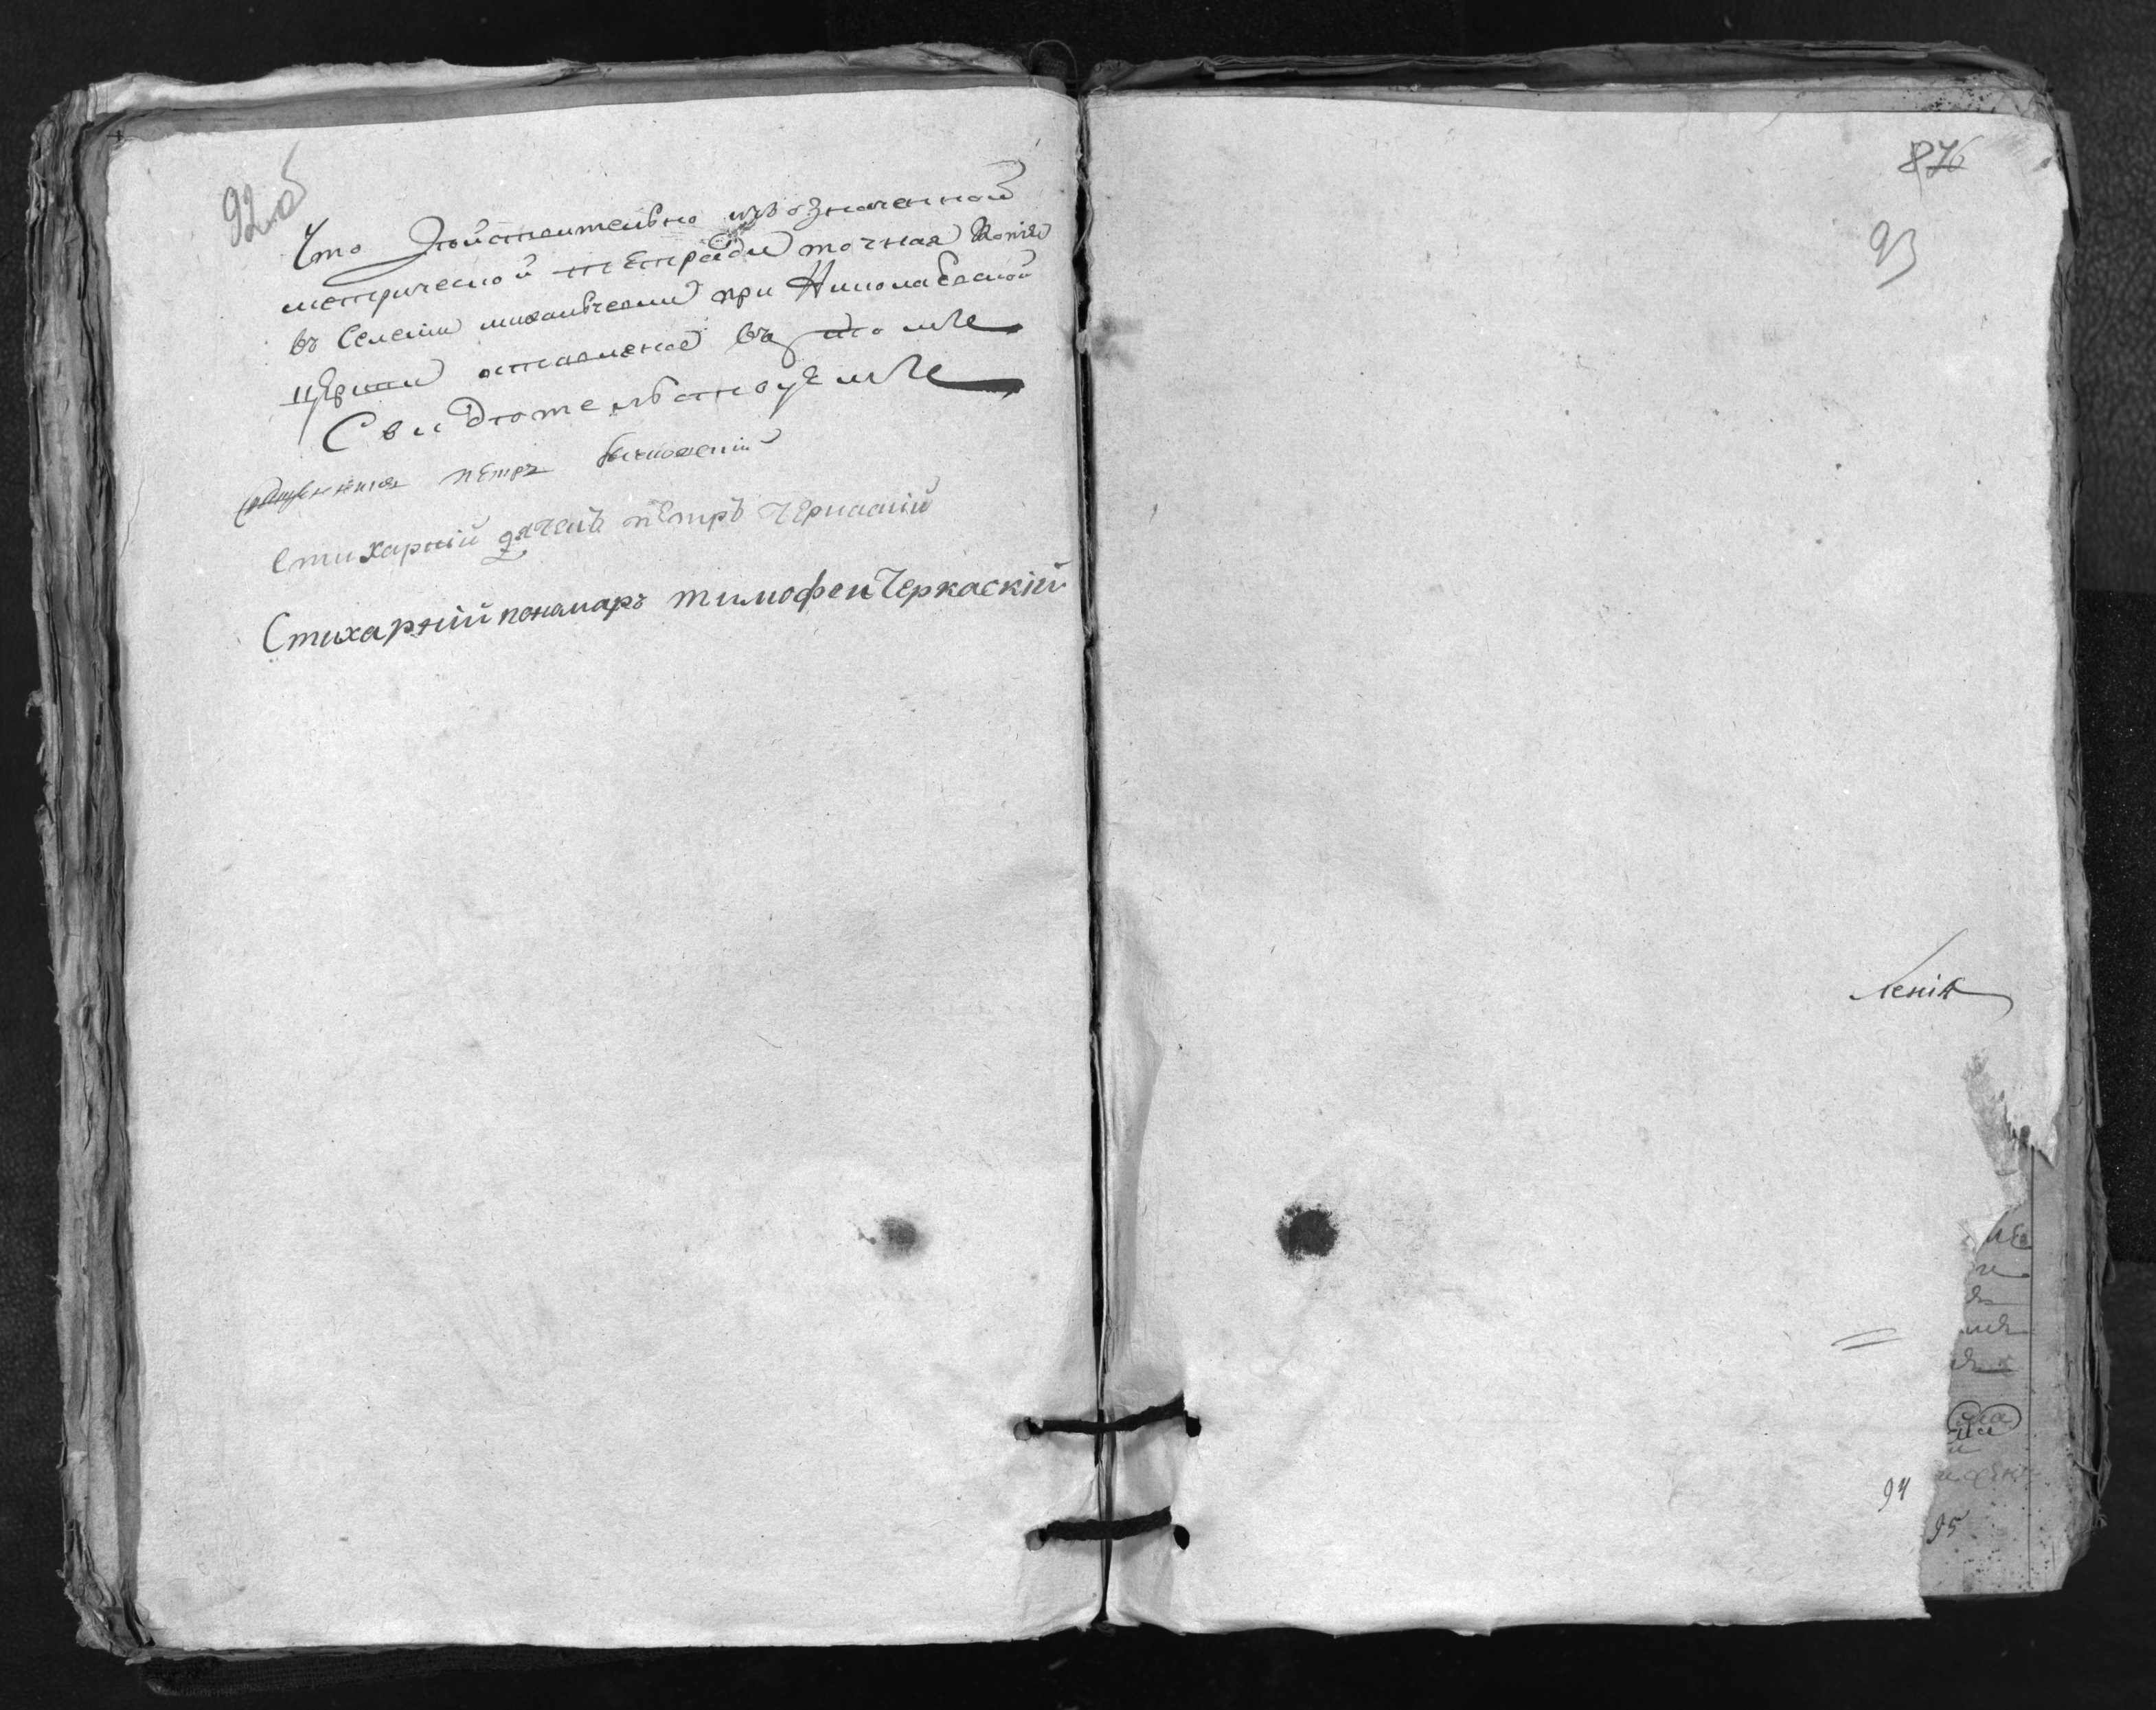 92об
Что Действительно съозначенной
метрической тетради точная копия
въ Селении при Николаевской
церкви оставлена въ томъ
Свидѣтельствуемъ
священникъ петръ
Стихарній дячекъ петръ Черкаскій
Стихарній понамарь тимофей Черкаскій
876
93
ленія
94
95